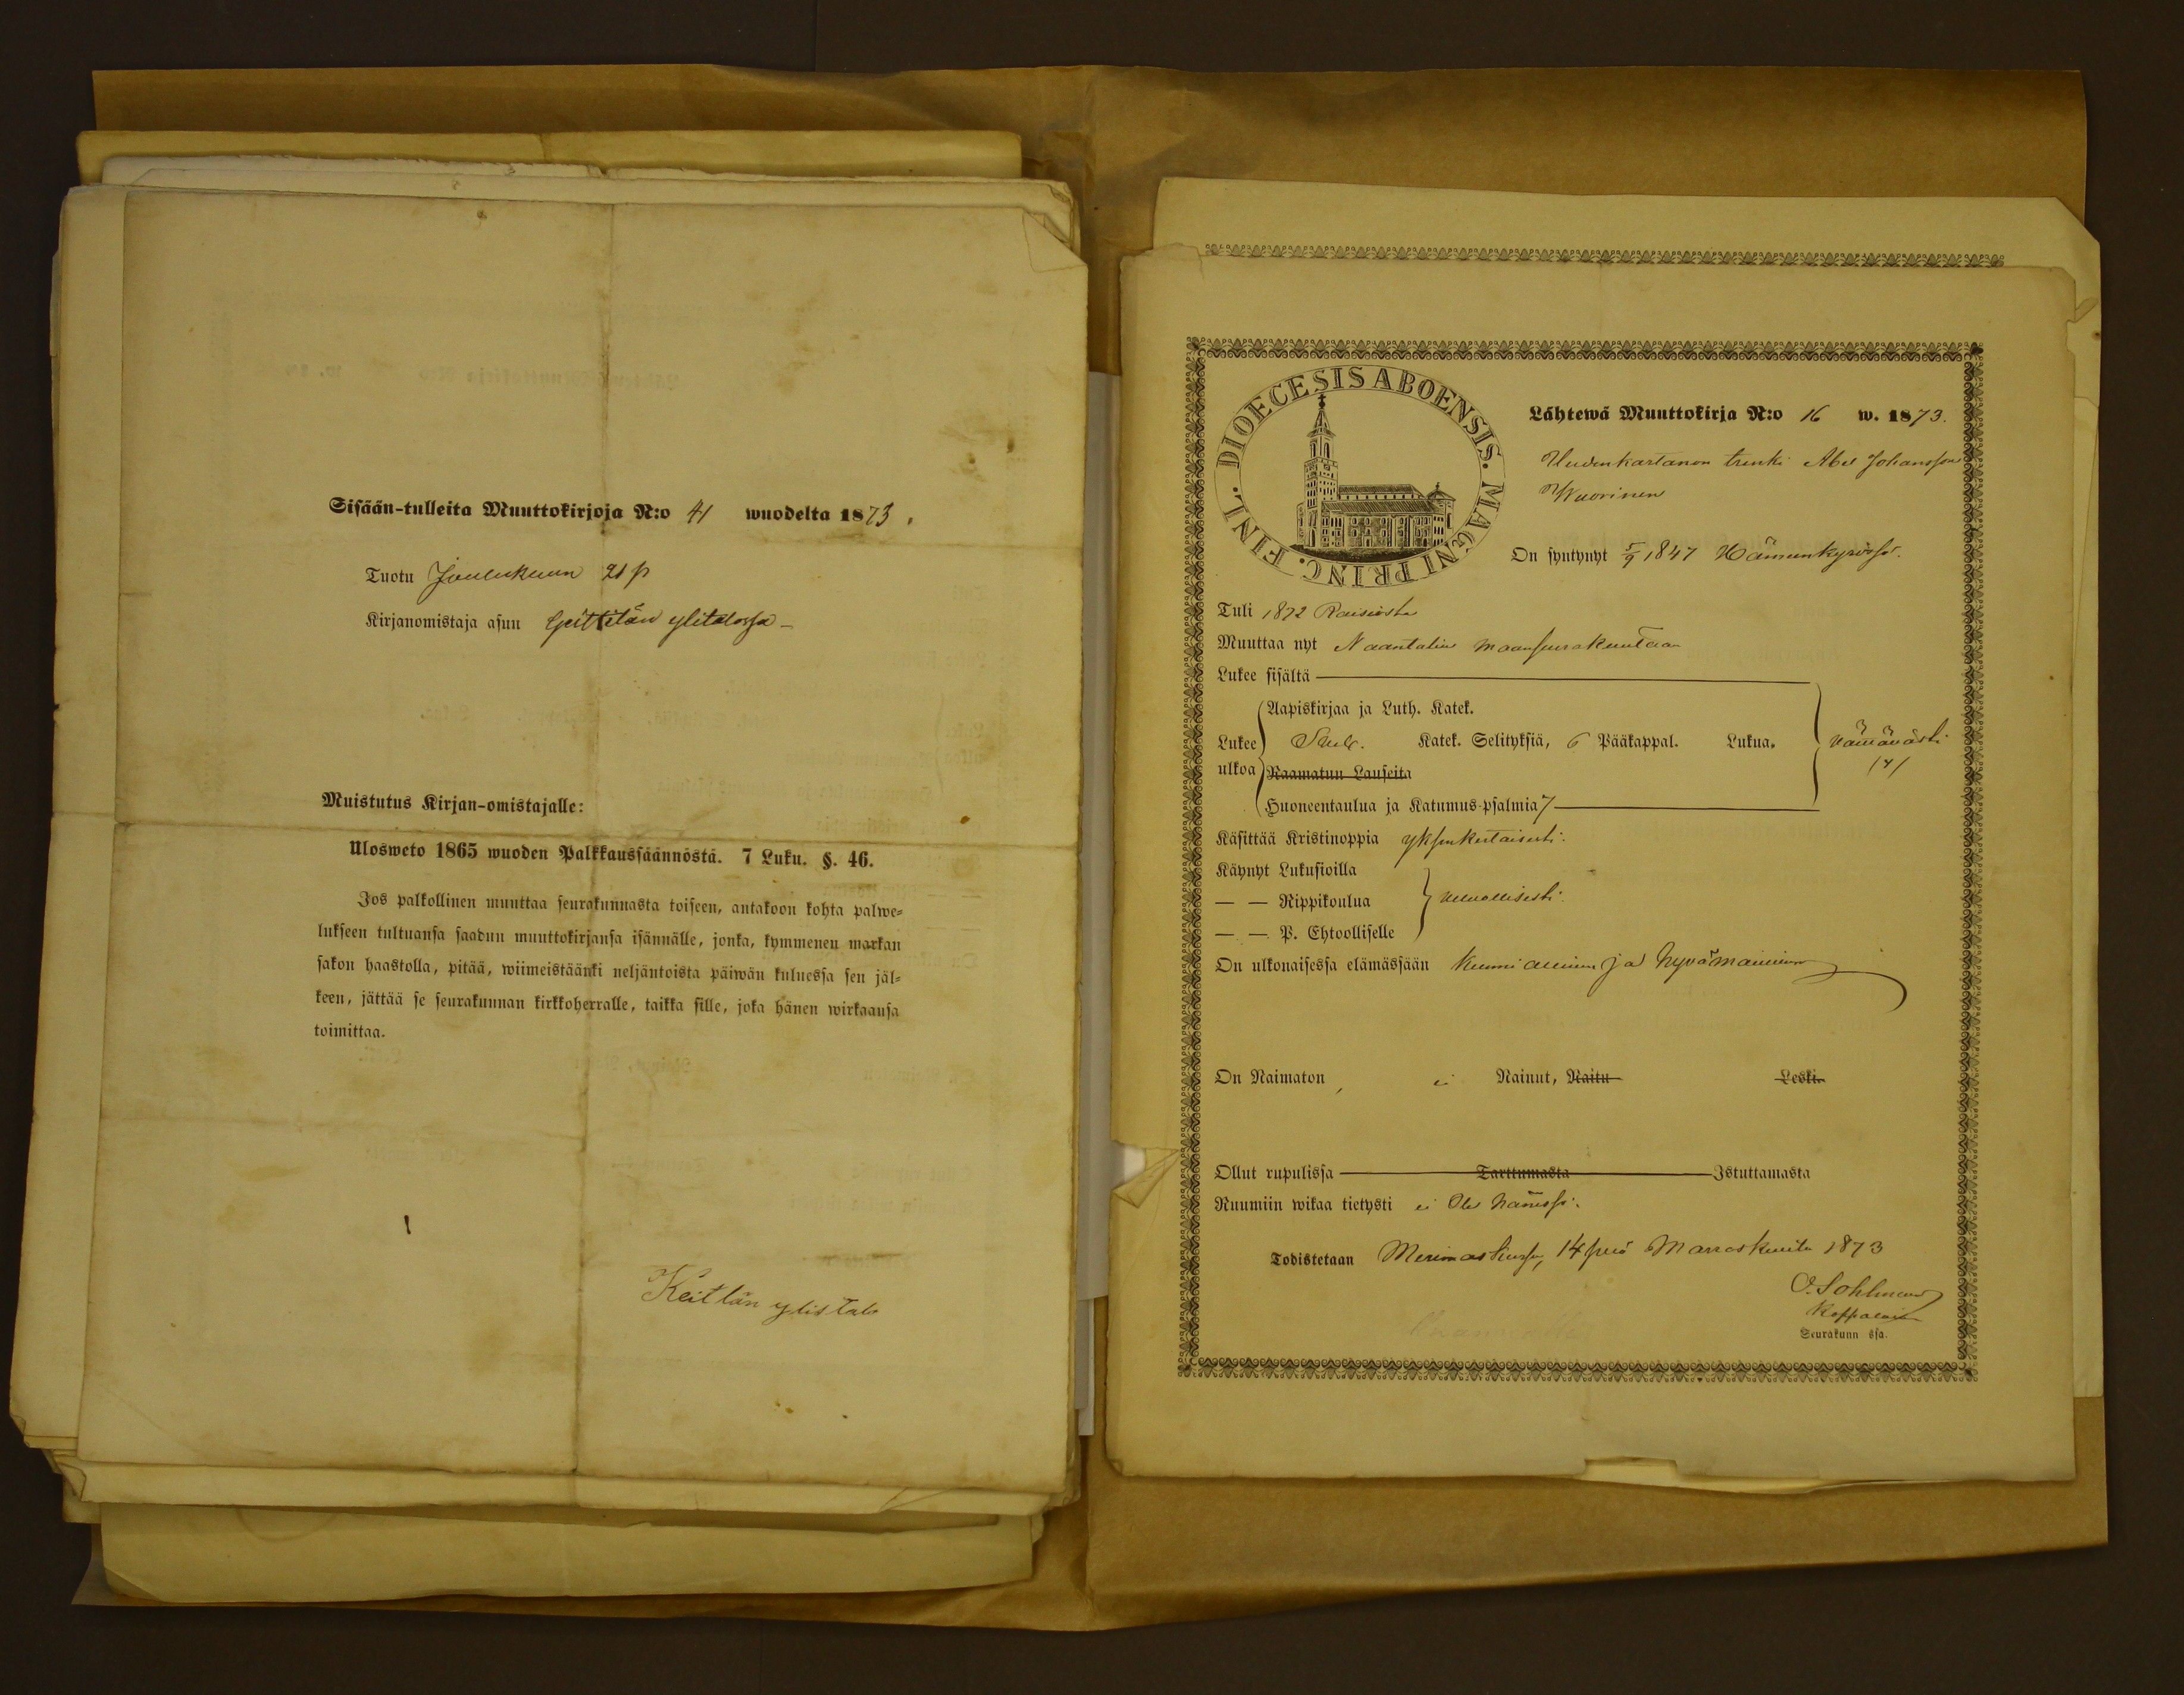 Sisään-tulleita Muuttokirjoja N:o 41 wuodelta 1873.
Tuotu Joulukuun 21 p
Kirjanomistaja asuu ylitalossa –
Muistutus Kirjan-omistajalle:
Ulosweto 1865 wuoden Palkkaussäännöstä. 7 Luku. §. 46.
Jos palkollinen muuttaa seurakunnasta toiseen, antakoon kohta palwe-
lukseen tultuansa saadun muuttokirjansa isännälle, jonka, kymmenen markan
sakon haastolla, pitää, wiimeistäänki neljäntoista päiwän kuluessa sen jäl-
keen, jättää se seurakunnan kirkkoherralle, taikka sille, joka hänen wirkaansa
toimittaa.
Keitlän ylistalo
DIOECESIS ABOENSIS. MAGNI PRINC. FINL.
Lähtewä Muuttokirja N:o 16 w. 1873.
Uudenkartanon trenki Abel Johansson
Wuorinen
On syntynyt 5/9 1847 Hämenkyrössä.
Tuli 1872 Raisiosta
Muuttaa nyt Naantalin maanseurakuntaan
Lukee sisältä
Aapiskirjaa ja Luth. Katek.
Lukee Katek. Selityksiä, 6 Pääkappal. Lukua.
ulkoa Raamatun Lauseita
Huoneentaulua ja Katumus-psalmia 7
Käsittää Kristinoppia yksinkertaisesti.
Käynyt Lukusioilla
— — Rippikoulua
— — P. Ehtoolliselle
On ulkonaisessa elämässään kunniallinen ja hyvämaininen
On Naimaton, ei Nainut, Naitu Leski.
Ollut rupulissa Tarttumasta Istuttamasta
Ruumiin wikaa tietysti ei Ole hänessä.
Todistetaan Merimaskussa, 14 p:nä Marraskuuta 1873
O. Sohlman
Kappalainen
Seurakunn ssa.